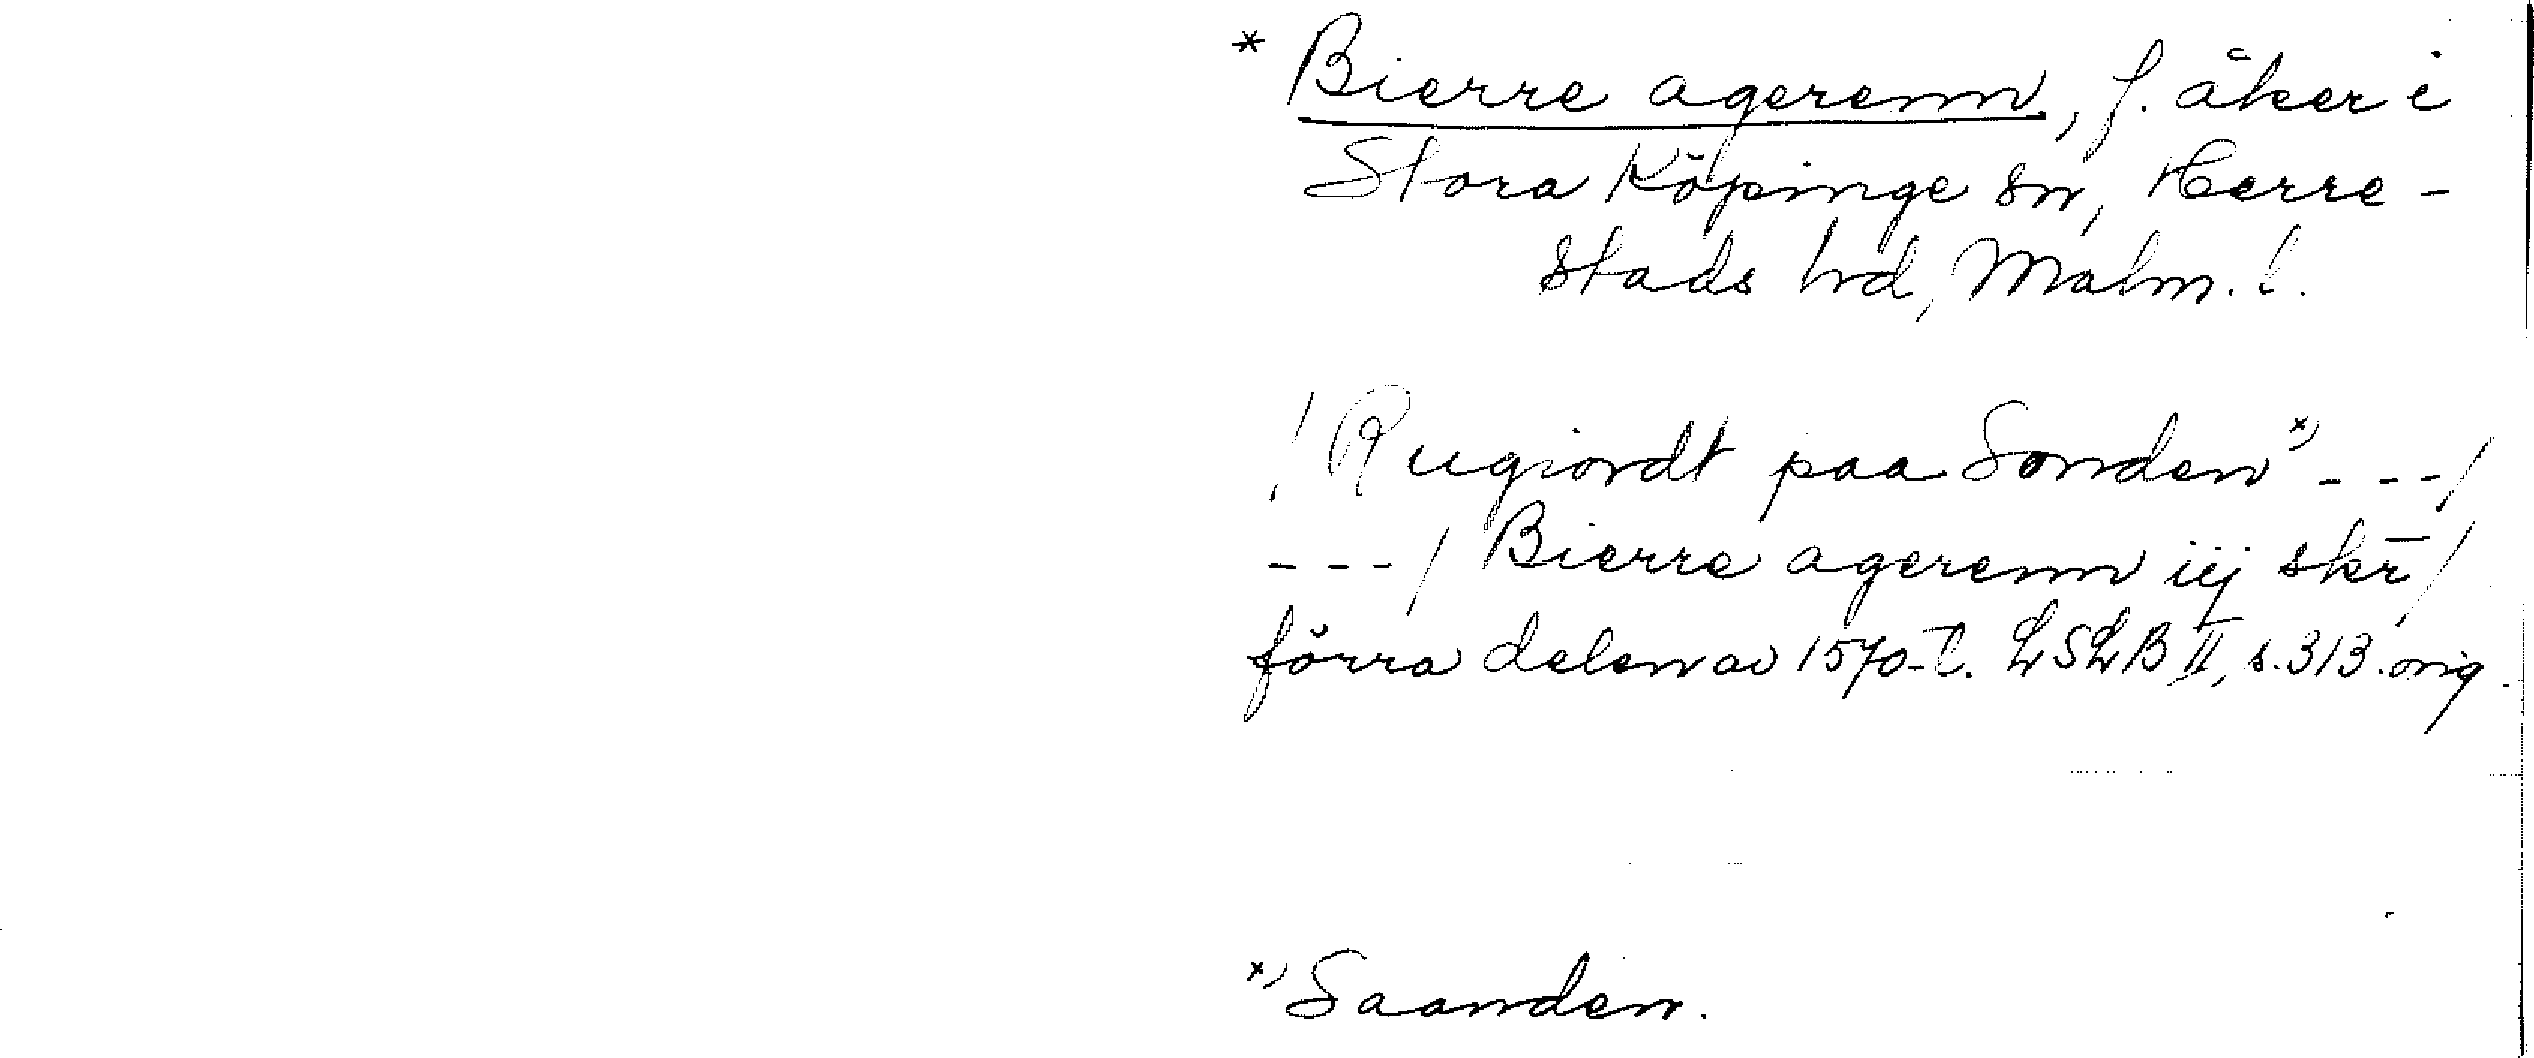 * Bierre agerenn, f. åker i
Stora Köpinge sn, Herre-
stads hd, Malm. l.
/ Rugiordt paa Sonden x) --- /
--- / Bierre agerenn iij skr̄ /
förra delen av 1570-t. LSLB II, s. 313. orig.
x) Saanden.